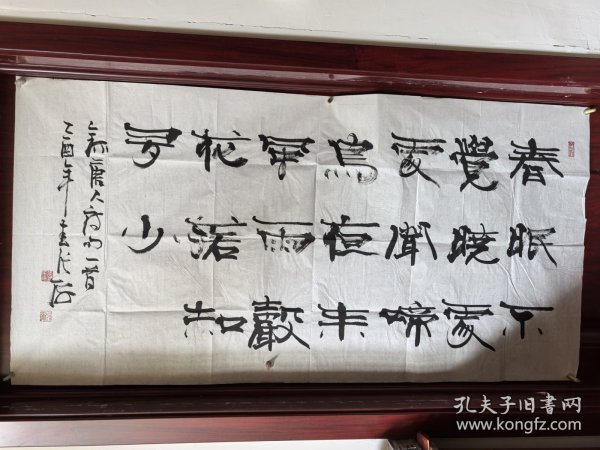 春眠不
覺曉處
處聞啼
鳥夜来
風雨聲
花落知
多少
唐人诗一首
乙酉年
孔夫子旧书网
www.kongfz.com